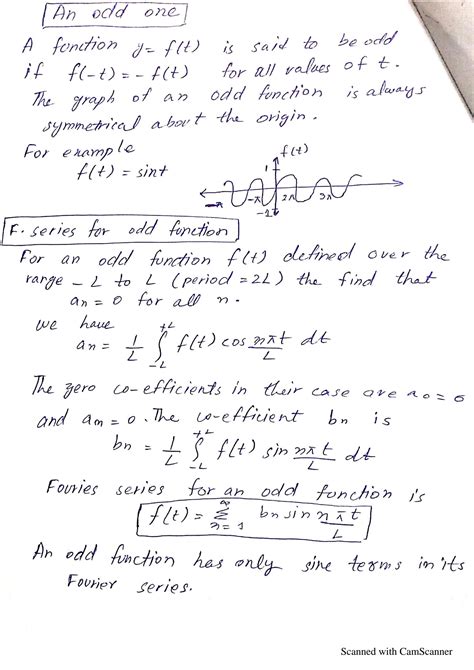 An odd one
A function y = f(t) is said to be odd
if f(-t) = - f(t) for all values of t.
The graph of an odd function is always
symmetrical about the origin.
For example
f(t) = sint
f(t)
1
-π 2π 3π
-1
F. series for odd function
For an odd function f(t) defined over the
range - L to L (period = 2L) the find that
an = 0 for all n.
we have
an = 1/L ∫_{-L}^{+L} f(t) cos nπt/L dt
The zero co-efficients in their case are a0 = 0
and am = 0. The co-efficient bn is
bn = 1/L ∫_{-L}^{+L} f(t) sin nπt/L dt
Fouries series for an odd function is
f(t) = ∑_{n=1}^{∞} bn sin nπt/L
An odd function has only sine terms in its
Fourier series.
Scanned with CamScanner